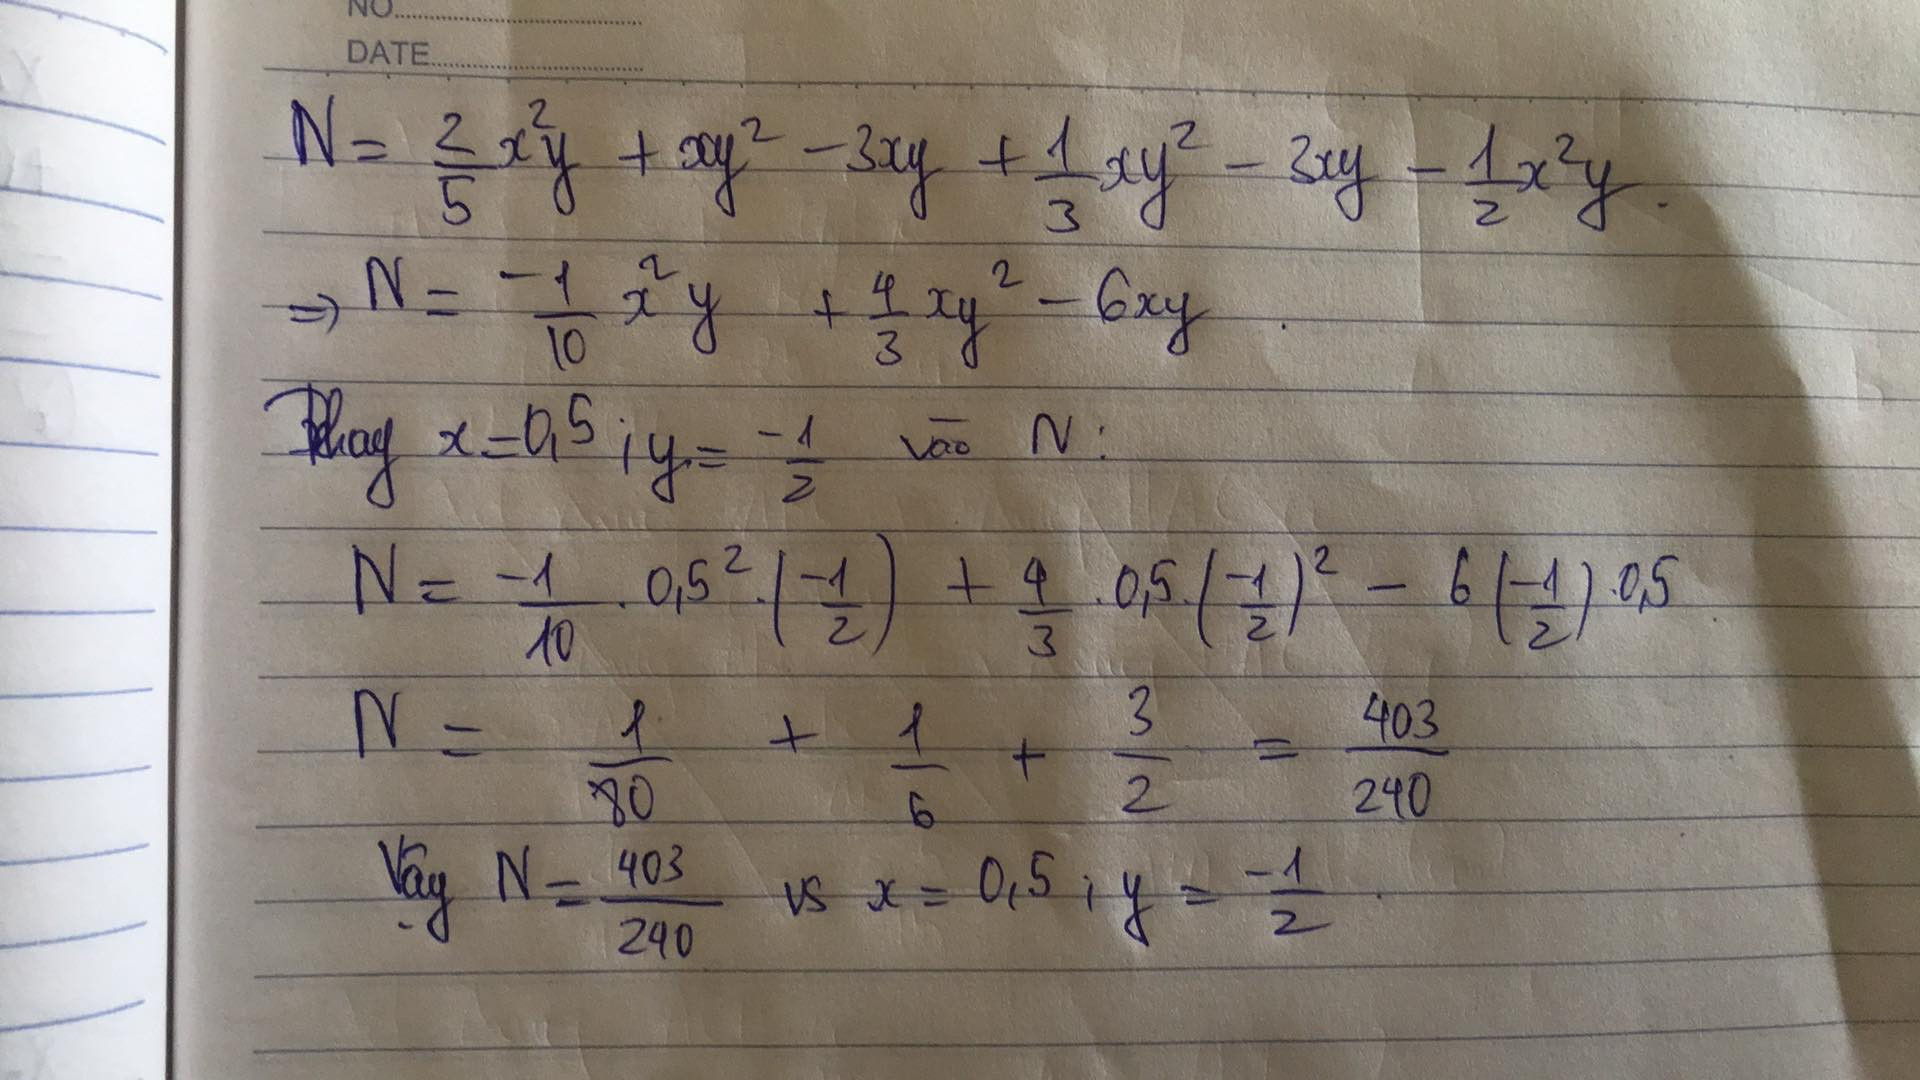 NO.
DATE.
N = 2/5 x²y + xy² - 3xy + 1/3 xy² - 3xy - 1/2 x²y.
=> N = -1/10 x²y + 4/3 xy² - 6xy.
Thay x = 0,5 ; y = -1/2 vào N :
N = -1/10 . 0,5² . (-1/2) + 4/3 . 0,5 . (-1/2)² - 6 (-1/2) . 0,5
N = 1/80 + 1/6 + 3/2 = 403/240
Vậy N = 403/240 vs x = 0,5 ; y = -1/2.